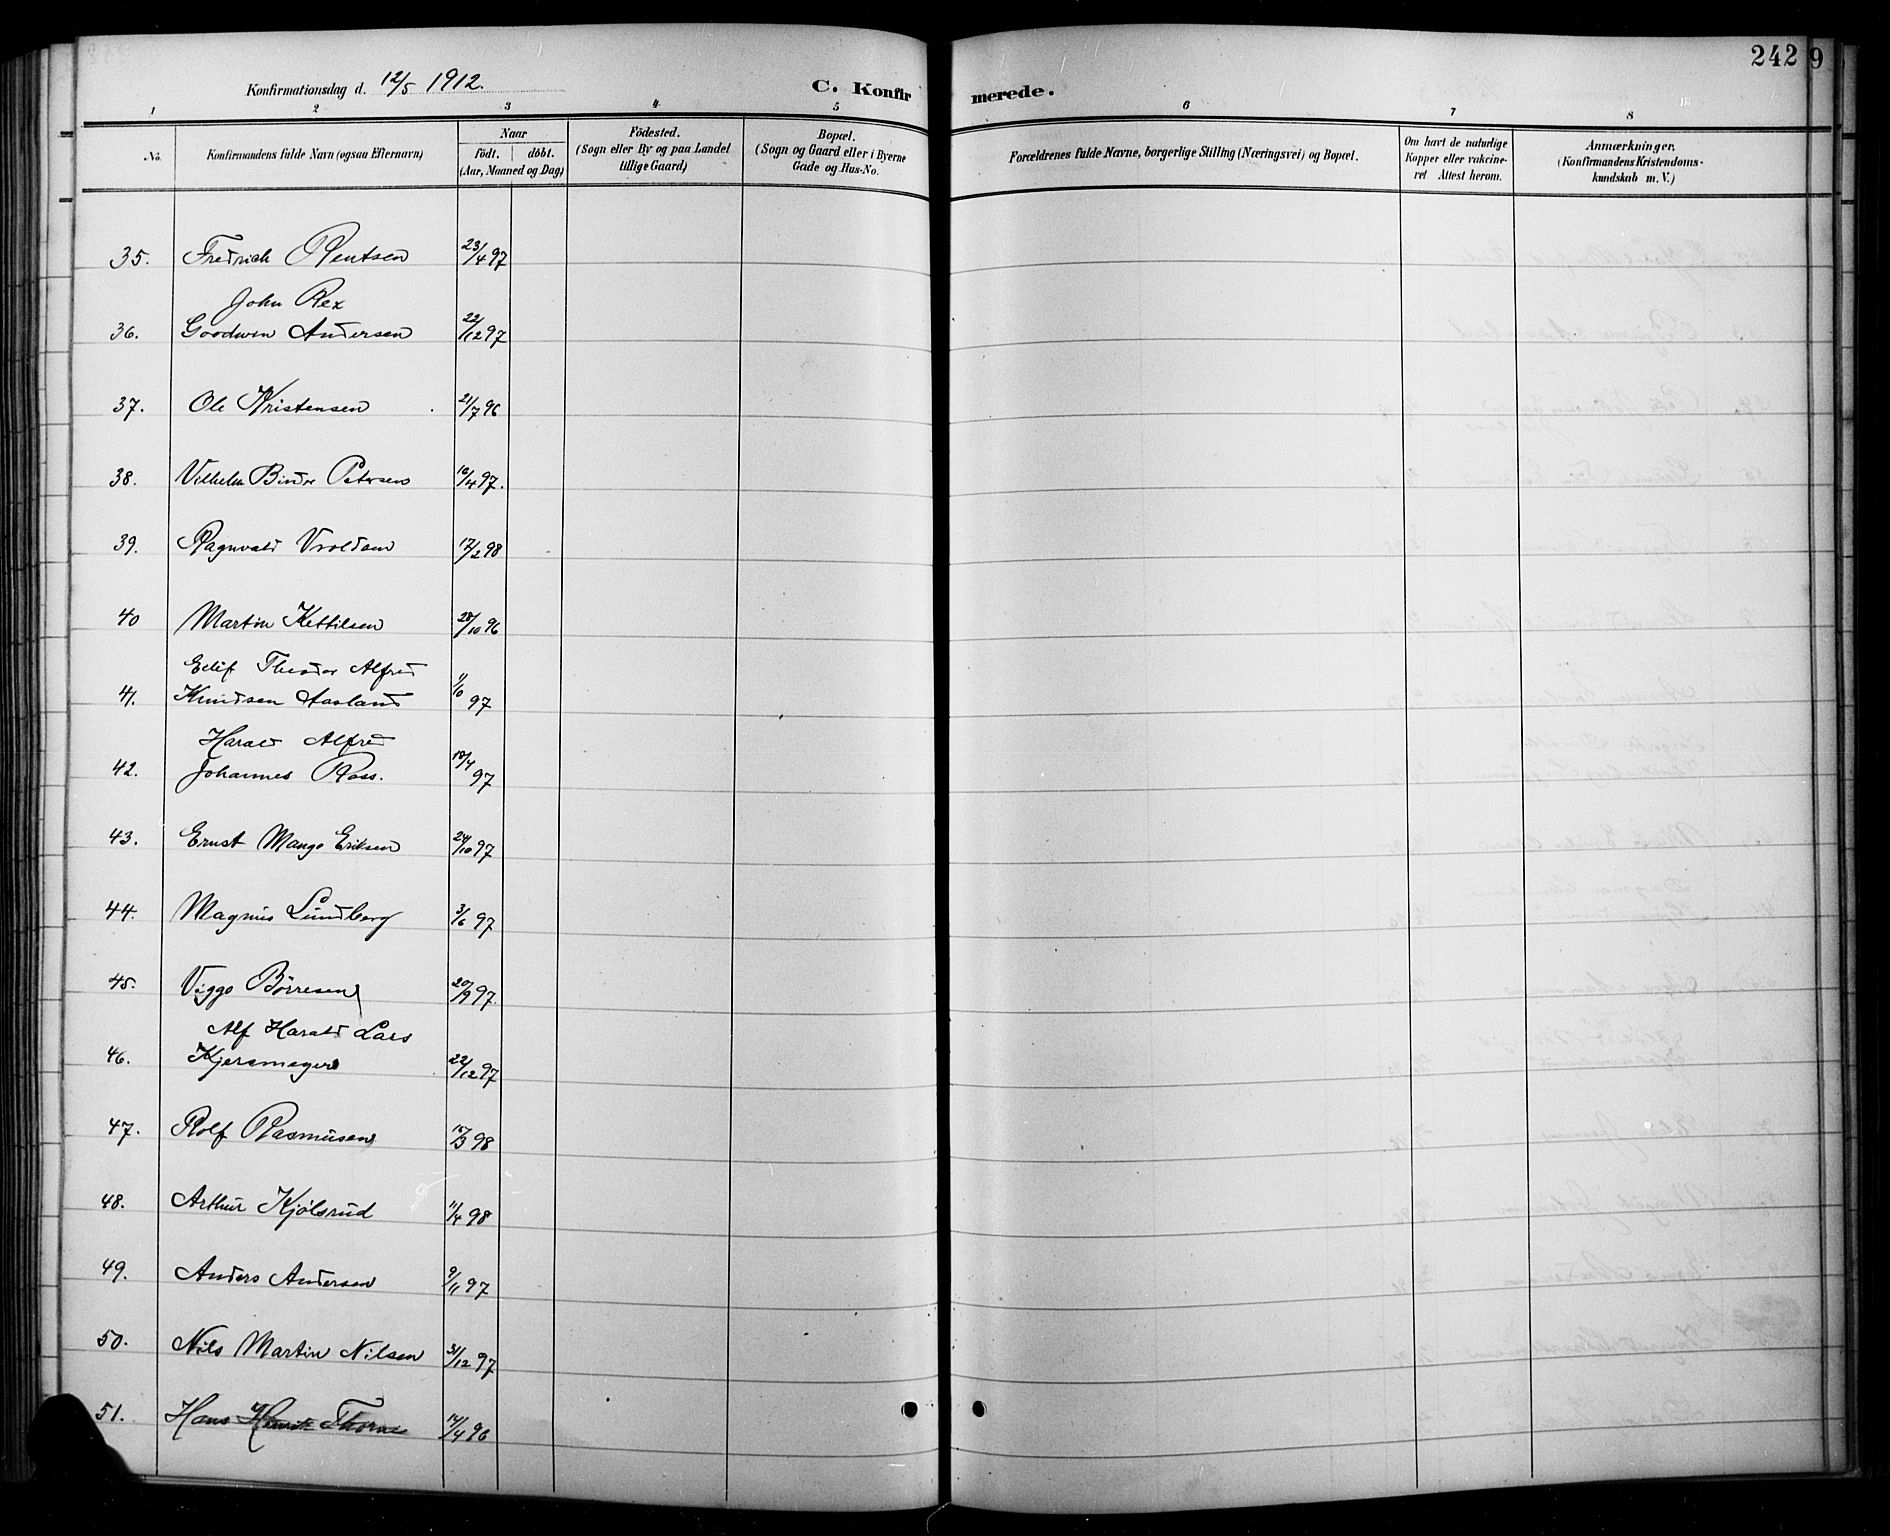 242
9
Konfirmationsdag d. 12/5 1912.
C. Konfirmerede.
1 2 3 4 5 6 7 8
No. Konfirmandens fulde Navn (ogsaa Efternavn) Naar födt. döbt. (Aar, Maaned og Dag) Födested. (Sogn eller By og paa Landet tillige Gaard) Bopæl. (Sogn og Gaard eller i Byerne Gade og Hus-No. Forældrenes fulde Navne, borgerlige Stilling (Næringsvei) og Bopæl. Om havt de naturlige Kopper eller vakcineret Attest herom. Anmærkninger. (Konfirmandens Kristendomskundskab m. V.)
35. Fredrich Rentsen 23/4 97
John Rex
36. Goodwin Andersen 22/12 97
37. Ole Kristensen 21/7 96
38. Vilhelm Petersen 10/4 97.
39. Ragnvald Vroldsen 17/2 98
40 Martin Kettilsen 28/10 96
Eilif Theodor Alfred
41. Knudsen Aasland 1/10 97
Harald Alfred
42. Johannes Ross. 18/4 97
43. Ernst Mango Eriksen 24/10 97
44. Magnus Lundberg 3/6 97
45. Viggo Börresen 20/9 97.
Alf Harald Laes
46. Kjersmeyer 22/12 97
47. Rolf Rasmusen 15/3 98
48. Arthur Kjölsrud 11/4 98
49. Anders Andersen 9/11 97
50. Nils Martin Nilsen 31/12 97
51. Hans Henrik Thorne 14/4 96